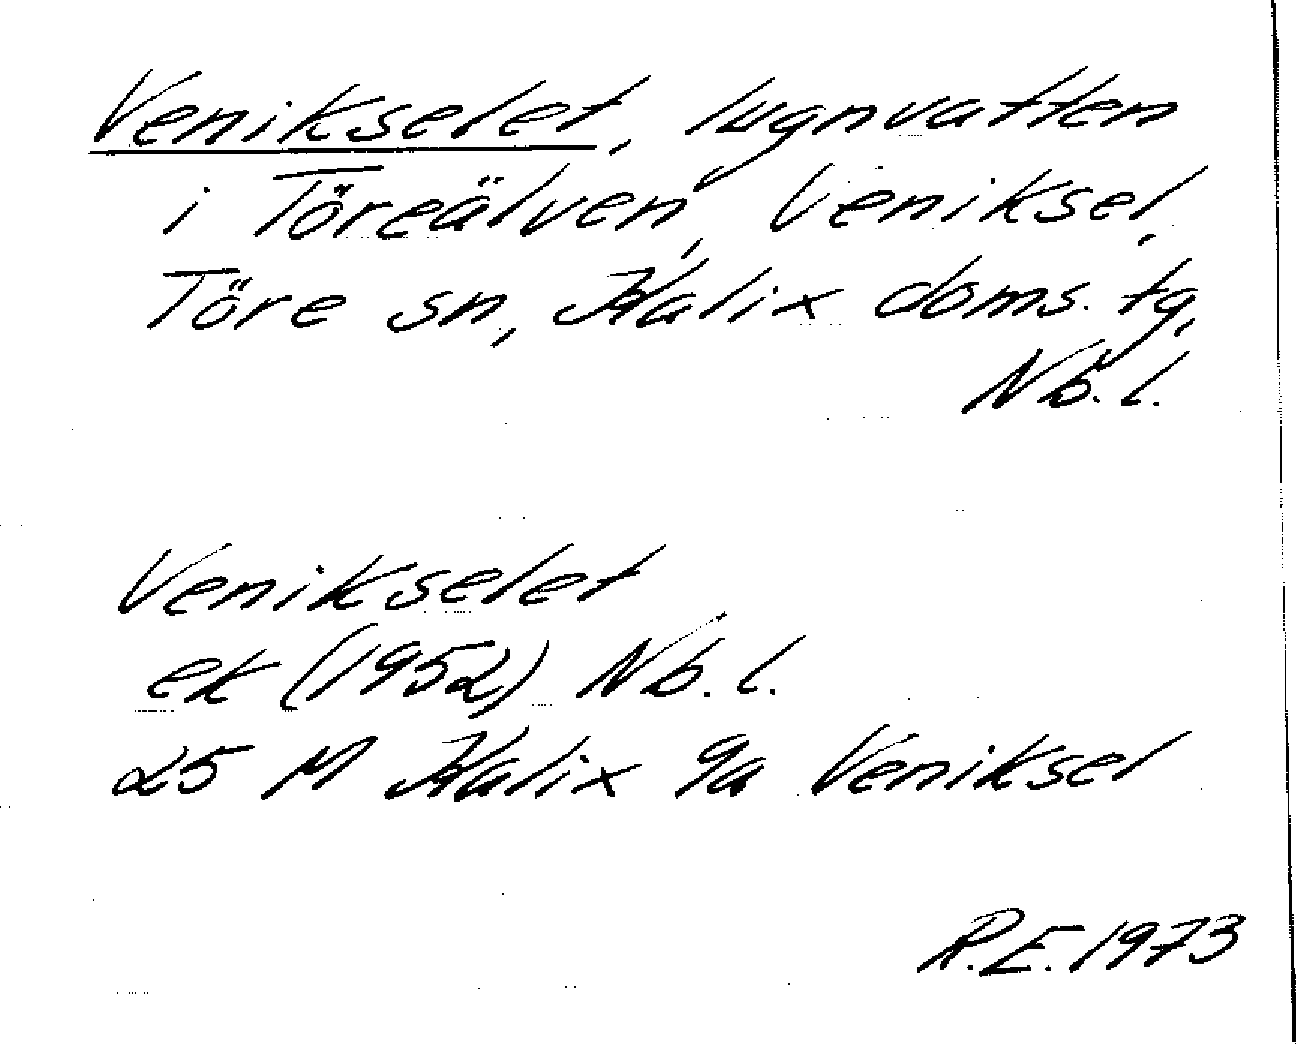 Venikselet, lugnvatten
i Töreälven, Veniksel,
Töre sn, Kalix doms. tg,
Nb. l.
Venikselet
ek (1952) Nb. l.
25 M Kalix 9a Veniksel
R.E. 1973